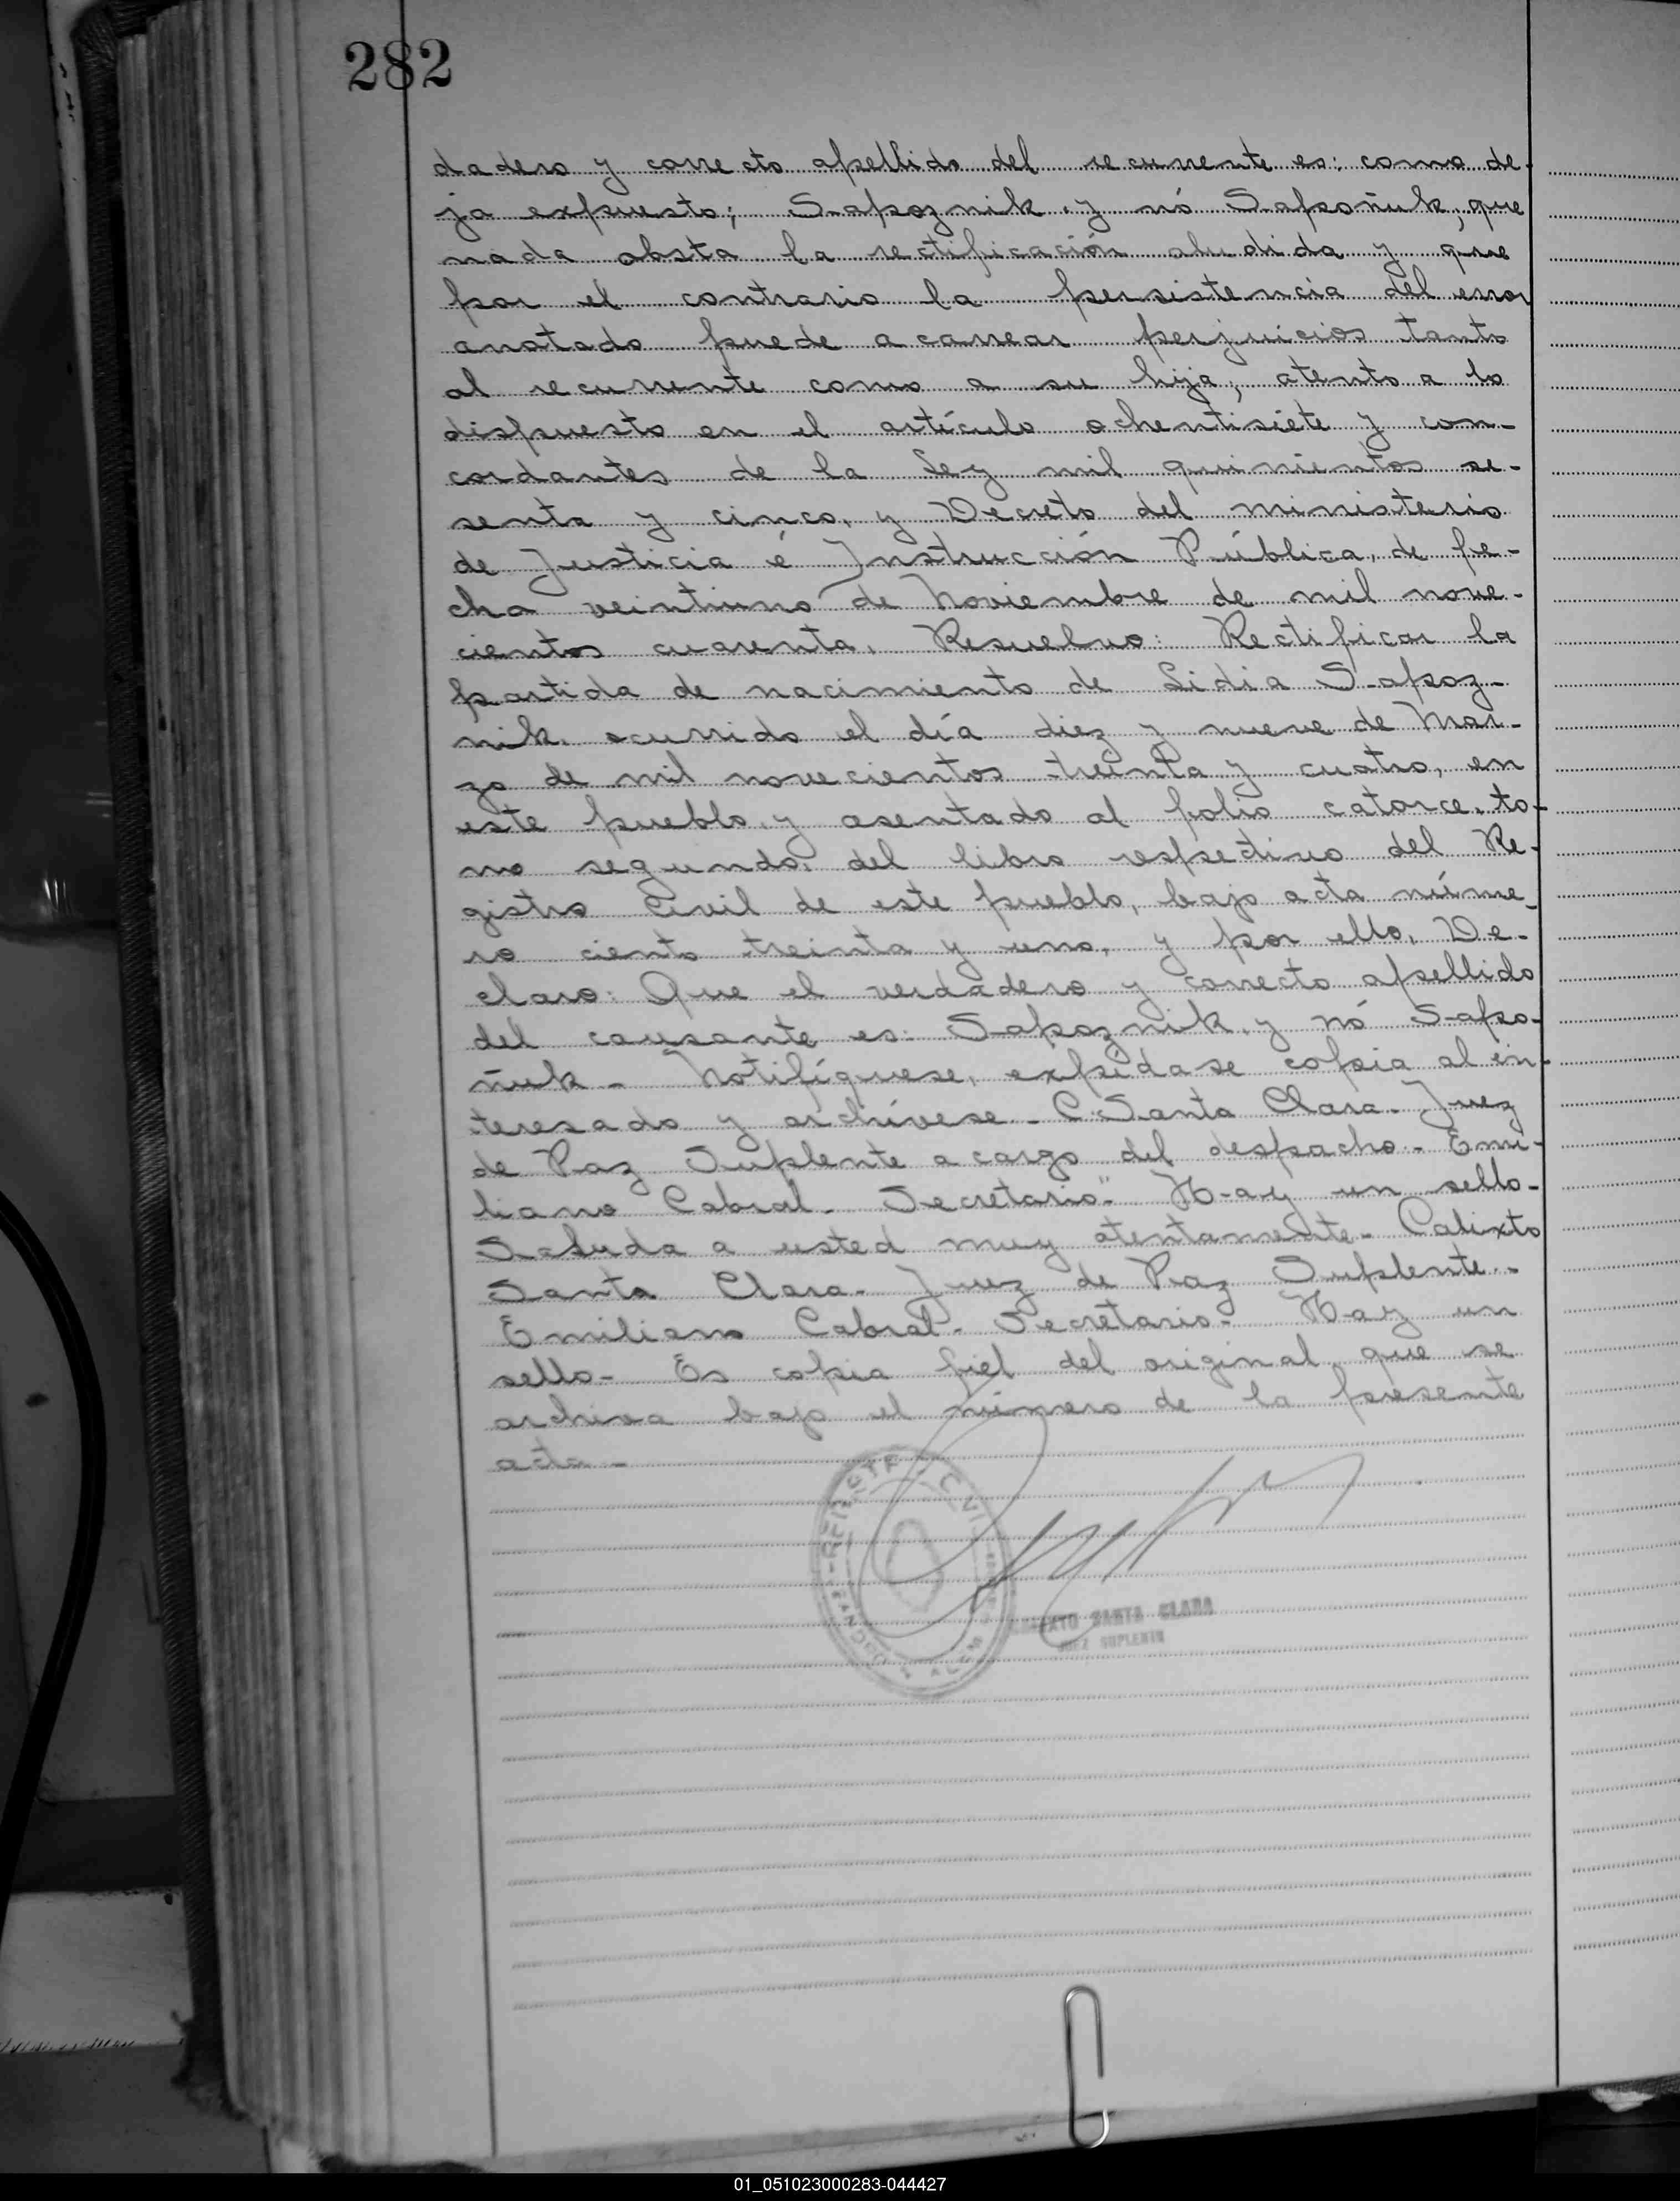 282
dadero y correcto apellido del recurrente es: como de-
ja expuesto; Sapoznik y nó Sapoñuk; que
nada obsta la rectificación aludida y que
por el contrario la persistencia del error
anotado puede acarrear perjuicios tanto
al recurrente como a su hija; atento a lo
dispuesto en el artículo ochentisiéte y con-
cordantes de la Ley mil quinientos se-
senta y cinco, y Decreto del ministerio
de Justicia é Instrucción Pública, de fe-
cha veintiuno de Noviembre de mil nove-
cientos cuarenta, Resuelvo: Rectificar la
partida de nacimiento de Lidia Sapoz-
nik, ocurrido el día diez y nueve de Mar-
zo de mil novecientos treinta y cuatro, en
este pueblo, y asentado al folio catorce, to-
mo segundo, del libro respectivo del Re-
gistro Civil de este pueblo, bajo acta núme-
ro ciento treinta y uno, y por ello, De-
claro: Que el verdadero y correcto apellido
del causante es: Sapoznik, y nó Sapo-
ñuk - Notifíquese, expídase copia al in-
teresado y archívese - C. Santa Clara - Juez
de Paz Suplente a cargo del despacho - Emi-
liano Cabral - Secretario" - Hay un sello -
Saluda a usted muy atentamente - Calixto
Santa Clara - Juez de Paz Suplente -
Emiliano Cabral - Secretario - Hay un
sello - Es copia fiel del original, que se
archiva bajo el número de la presente
acta -
CALIXTO SANTA CLARA
JUEZ SUPLENTE
01_051023000283-044427